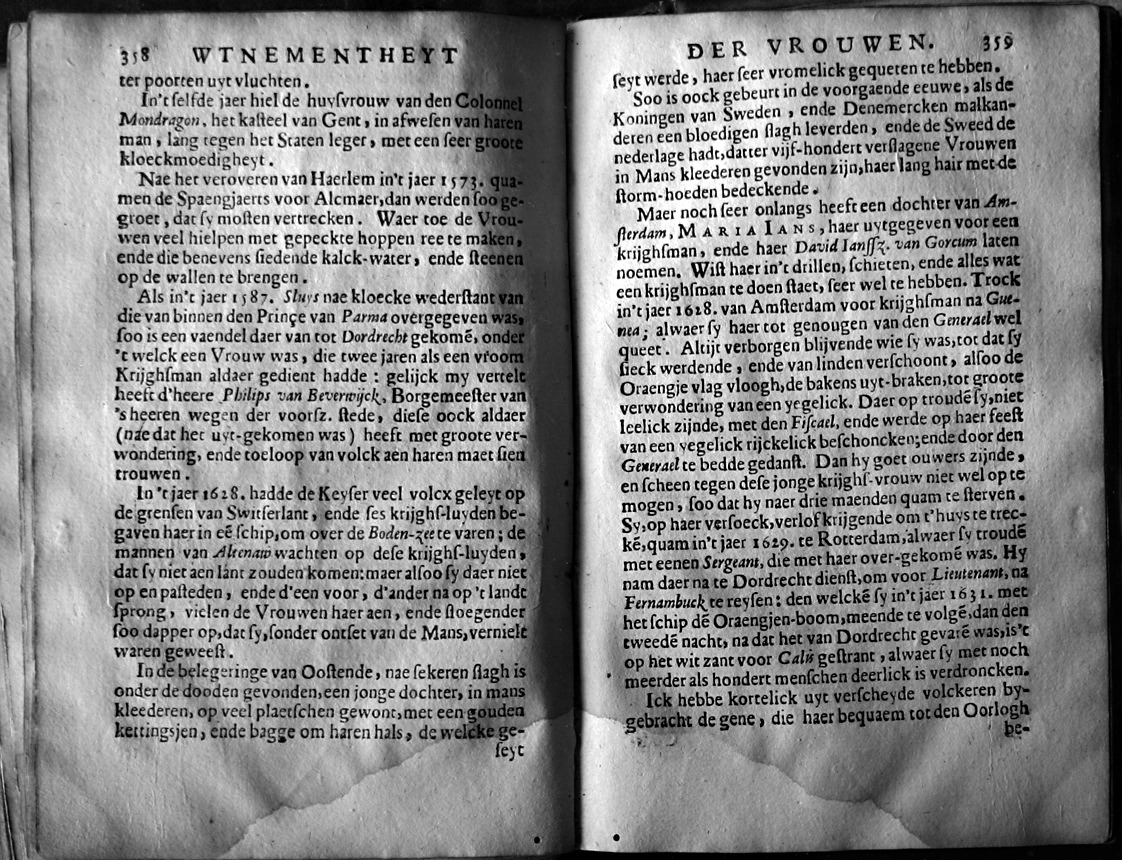 358 WTNEMENTHEYT
ter poorten uyt vluchten.
In't selfde jaer hiel de huysvrouw van den Colonnel
Mondragon, het kasteel van Gent, in afwesen van haren
man, lang tegen het Staten leger, met een seer groote
kloeckmoedigheyt.
Nae het veroveren van Haerlem in't jaer 1573. qua-
men de Spaengjaerts voor Alcmaer, dan werden soo ge-
groet, dat sy mosten vertrecken. Waer toe de Vrou-
wen veel hielpen met gepeckte hoppen ree te maken,
ende die benevens siedende kalck-water, ende steenen
op de wallen te brengen.
Als in't jaer 1587. Sluys nae kloecke wederstant van
die van binnen den Prinçe van Parma overgegeven was,
soo is een vaendel daer van tot Dordrecht gekomē, onder
't welck een Vrouw was, die twee jaren als een vroom
Krijghsman aldaer gedient hadde: gelijck my vertelt
heeft d'heere Philips van Beverwijck, Borgemeester van
's heeren wegen der voorsz. stede, diese oock aldaer
(nae dat het uyt-gekomen was) heeft met groote ver-
wondering, ende toeloop van volck aen haren maet sien
trouwen.
In 't jaer 1628. hadde de Keyser veel volcx geleyt op
de grensen van Switserlant, ende ses krijghs-luyden be-
gaven haer in eē schip, om over de Boden-zee te varen; de
mannen van Altenaw wachten op dese krijghs-luyden,
dat sy niet aen lant zouden komen: maer alsoo sy daer niet
op en pasteden, ende d'een voor, d'ander na op 't landt
sprong, vielen de Vrouwen haer aen, ende sloegender
soo dapper op, dat sy, sonder ontset van de Mans, vernielt
waren geweest.
In de belegeringe van Oostende, nae sekeren slagh is
onder de dooden gevonden, een jonge dochter, in mans
kleederen, op veel plaetschen gewont, met een gouden
kettingsjen, ende bagge om haren hals, de welcke ge-
seyt
DER VROUWEN. 359
seyt werde, haer seer vromelick gequeten te hebben.
Soo is oock gebeurt in de voorgaende eeuwe, als de
Koningen van Sweden, ende Denemercken malkan-
deren een bloedigen slagh leverden, ende de Sweed de
nederlage hadt, datter vijf-hondert verslagene Vrouwen
in Mans kleederen gevonden zijn, haer lang hair met de
storm-hoeden bedeckende.
Maer noch seer onlangs heeft een dochter van Am-
sterdam, MARIA IANS, haer uytgegeven voor een
krijghsman, ende haer David Iansſz. van Gorcum laten
noemen. Wist haer in't drillen, schieten, ende alles wat
een krijghsman te doen staet, seer wel te hebben. Trock
in't jaer 1628. van Amsterdam voor krijghsman na Gue-
nea; alwaer sy haer tot genougen van den Generael wel
queet. Altijt verborgen blijvende wie sy was, tot dat sy
sieck werdende, ende van linden verschoont, alsoo de
Oraengje vlag vloogh, de bakens uyt-braken, tot groote
verwondering van een yegelick. Daer op troudē sy, niet
leelick zijnde, met den Fiscael, ende werde op haer feest
van een yegelick rijckelick beschoncken; ende door den
Generael te bedde gedanst. Dan hy goet ouwers zijnde,
en scheen tegen dese jonge krijghs-vrouw niet wel op te
mogen, soo dat hy naer drie maenden quam te sterven.
Sy, op haer versoeck, verlof krijgende om t'huys te trec-
kē, quam in't jaer 1629. te Rotterdam, alwaer sy troudē
met eenen Sergeant, die met haer over-gekomē was. Hy
nam daer na te Dordrecht dienst, om voor Lieutenant, na
Fernambuck te reysen: den welckē sy in't jaer 1631. met
het schip dē Oraengjen-boom, meende te volgē, dan den
tweedē nacht, na dat het van Dordrecht gevarē was, is't
op het wit zant voor Calis gestrant, alwaer sy met noch
meerder als hondert menschen deerlick is verdroncken.
Ick hebbe kortelick uyt verscheyde volckeren by-
gebracht de gene, die haer bequaem tot den Oorlogh
be-